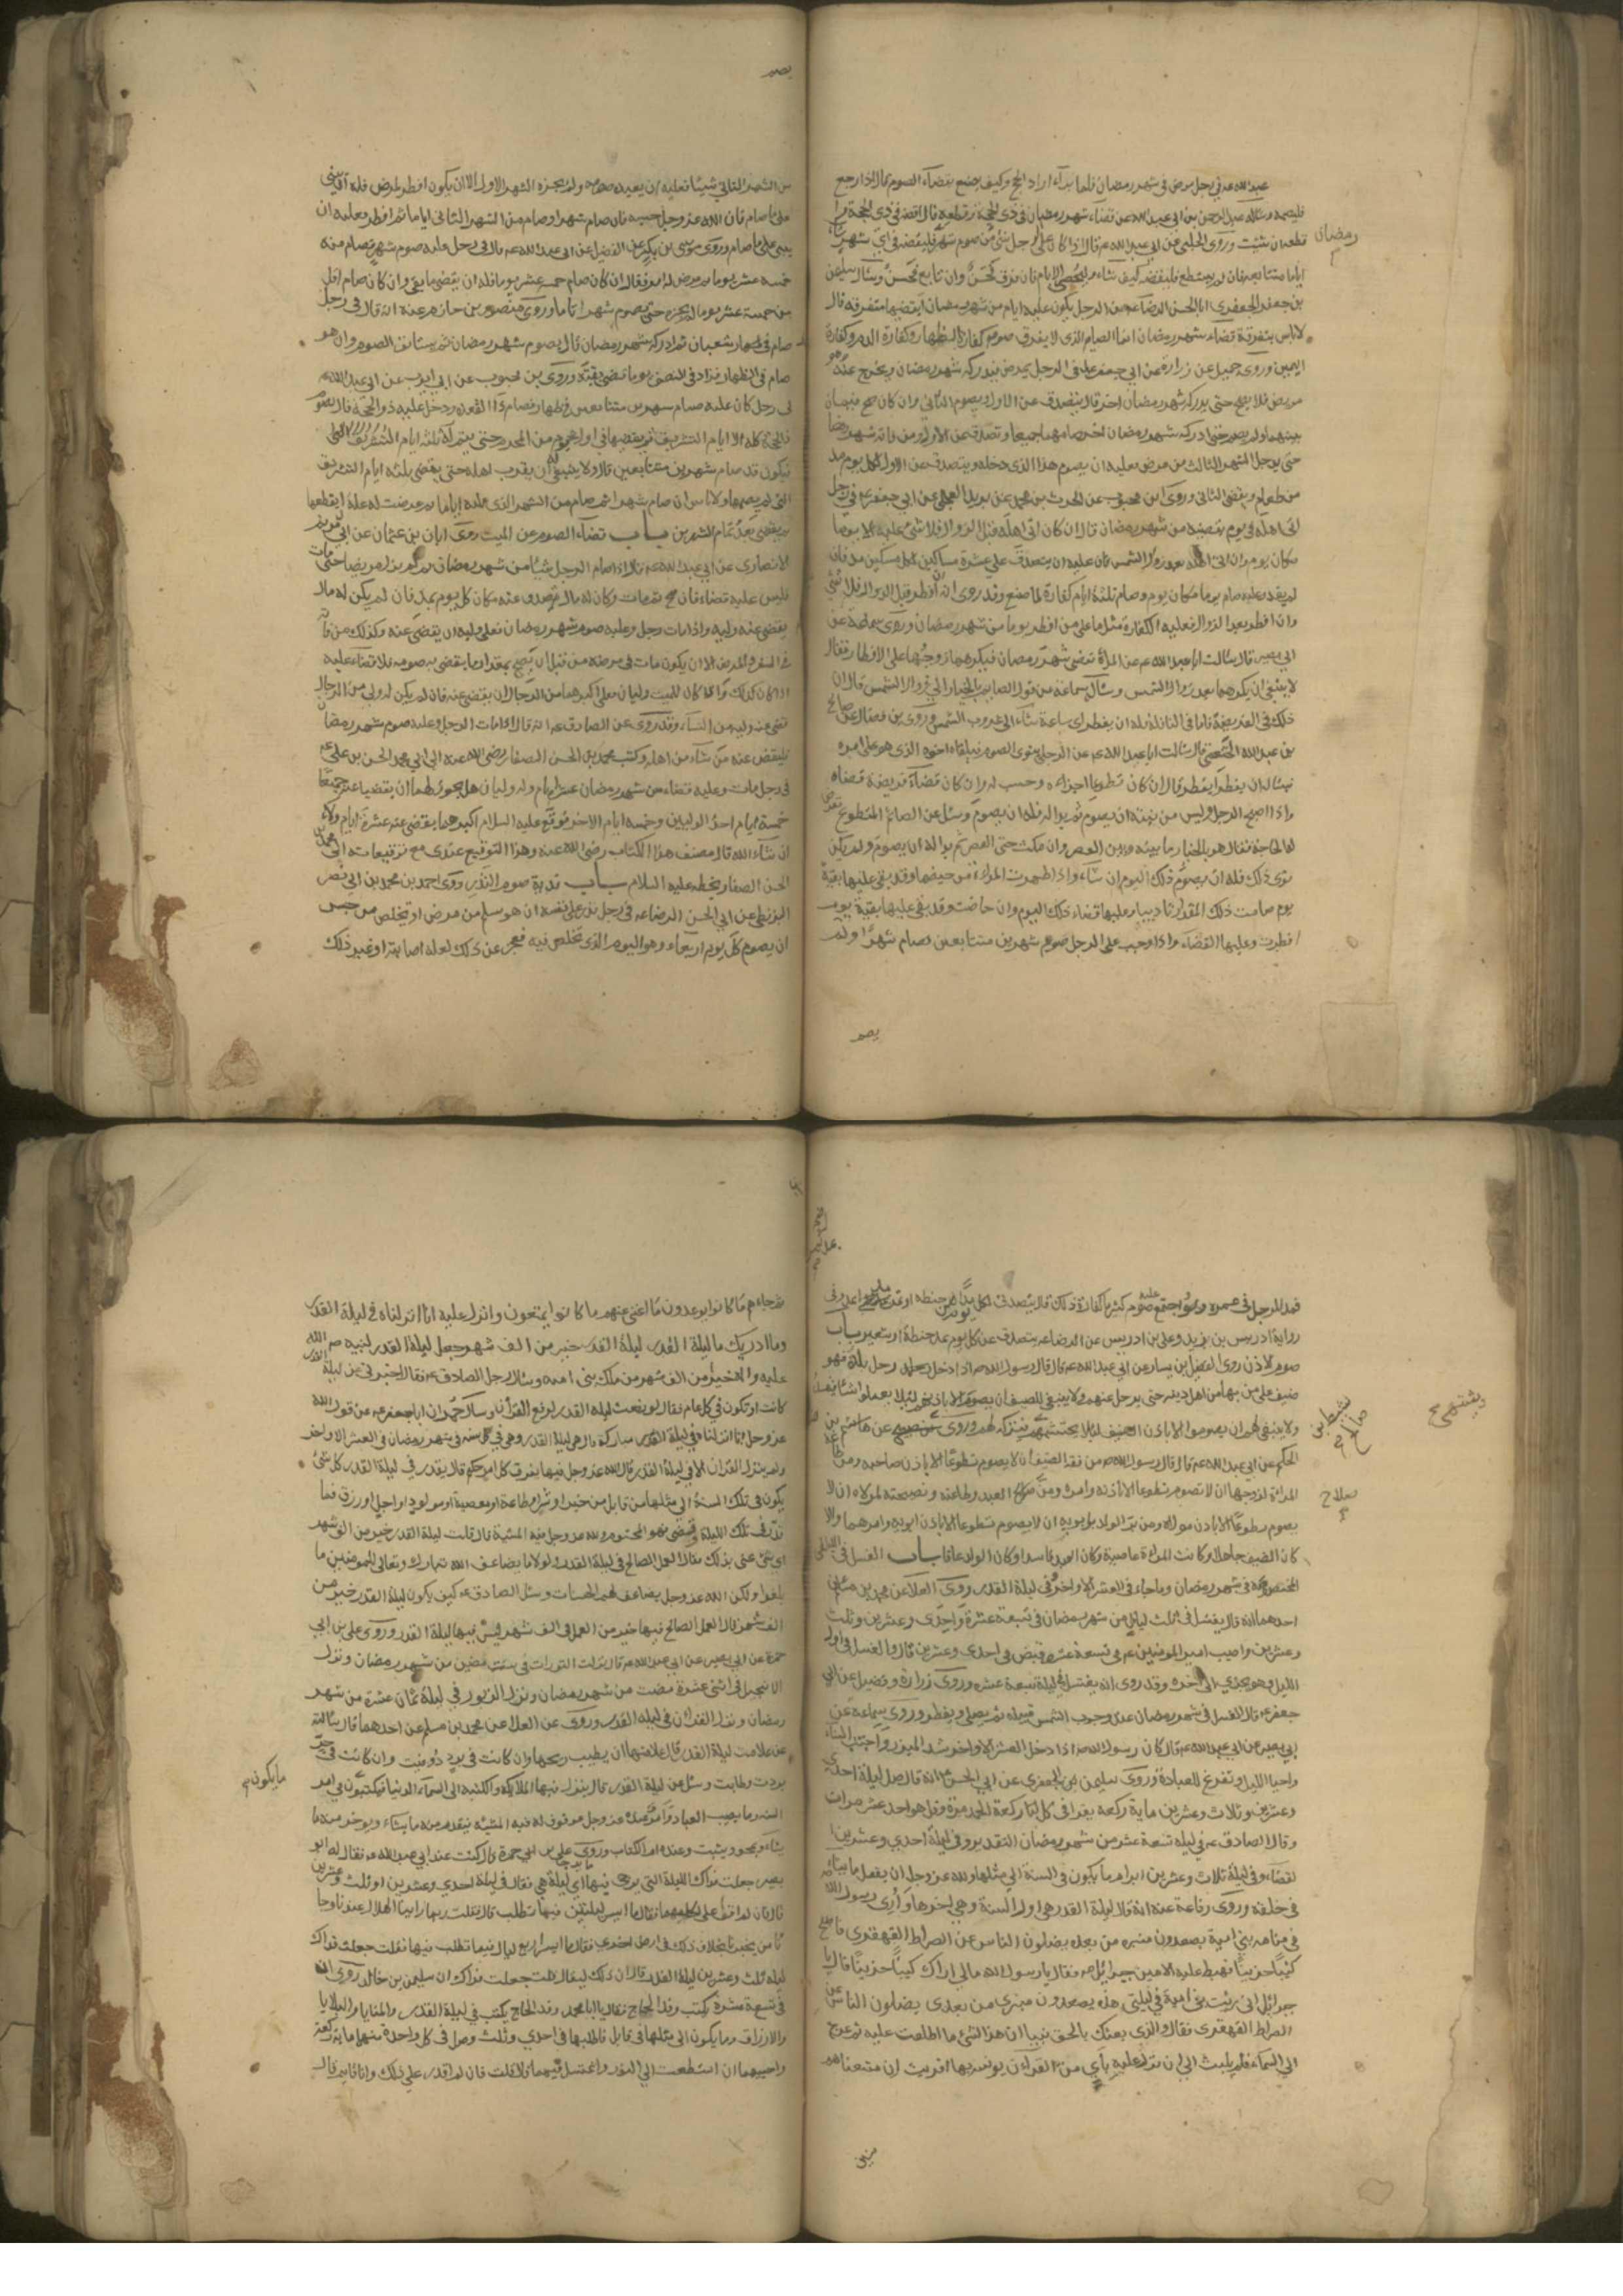 عبدالله عه في رجل مرض في شهر رمضان فلما برأ اراد الحج وكيف يصنع بقضاء الصوم قال اذا رجع
فليصمه وسأله عبد الرحمن بن ابي عبدالله عن قضاء شهر رمضان في ذي الحجة وقطعه قال اقضه في ذي الحجة و
اقطعه ان شئت وروى الحلبي عن ابي عبدالله عه قال اذا كان على الرجل شئ من صوم شهر فليقضه في اي شهر شاء
رمضان
اياما متتابعة فان لم يستطع فليقضه كيف شاء وليحص الايام فان فرق فحسن وان تابع فحسن وسأل سليمن
بن جعفر الجعفري ابا الحسن الرضا عه عن الرجل يكون عليه ايام من شهر رمضان ايقضيها متفرقة قال
لا بأس بتفرقة قضاء شهر رمضان انما الصيام الذي لا يفرق صوم كفارة الظهار وكفارة الدم وكفارة
اليمين وروى جميل عن زرارة عن ابي جعفر عه في الرجل يمرض فيدركه شهر رمضان ويخرج عنه وهو
مريض فلا يصح حتى يدركه شهر رمضان اخر قال يتصدق عن الاول ويصوم الثاني وان كان صح فيما
بينهما ولم يصم حتى ادركه شهر رمضان اخر صامهما جميعا وتصدق عن الاول ومن فاته شهر رمضان
حتى يدخل الشهر الثالث من مرض فعليه ان يصوم هذا الذي دخله ويتصدق عن الاول لكل يوم مد
من طعام ويقضي الثاني وروى ابن محبوب عن الحرث بن محمد عن بريد العجلي عن ابي جعفر عه في رجل
اتى اهله في يوم يقضيه من شهر رمضان قال ان كان اتى اهله قبل الزوال فلا شئ عليه الا يوما
مكان يوم وان اتى اهله بعد زوال الشمس فان عليه ان يتصدق على عشرة مساكين لكل مسكين مد فان
لم يقدر عليه صام يوما مكان يوم وصام ثلثة ايام كفارة لما صنع وقد روى انه ان افطر قبل الزوال فلا شئ
وان افطر بعد الزوال فعليه الكفارة مثل ما على من افطر يوما من شهر رمضان وروى سماعة عن
ابي بصير قال سألت ابا عبدالله عه عن المرأة تقضي شهر رمضان فيكرهها زوجها على الافطار فقال
لا ينبغي ان يكرهها بعد زوال الشمس وسأله سماعة عن قوله الصائم بالخيار الى زوال الشمس قال ان
ذلك في الفريضة فاما في النافلة فله ان يفطر اي ساعة شاء الى غروب الشمس وروى بن فضال عن صالح
بن عبدالله الخثعمي قال سألت ابا عبدالله عه عن الرجل ينوي الصوم فيلقاه اخوه الذي هو على امره
فيسأله ان يفطر ايفطر قال ان كان تطوعا اجزأه وحسب له وان كان قضاء فريضة قضاه
واذا اصبح الرجل وليس من نيته ان يصوم ثم بدا له فله ان يصوم وسئل عن الصائم المتطوع تعرض
له الحاجة فقال هو بالخيار ما بينه وبين العصر وان مكث حتى العصر ثم بدا له ان يصوم ولم يكن
نوى ذلك فله ان يصوم ذلك اليوم ان شاء واذا طهرت المرأة من حيضها وقد بقي عليها بقية
يوم صامت ذلك المقدار تأديبا وعليها قضاء ذلك اليوم وان حاضت وقد بقي عليها بقية يوم
افطرت وعليها القضاء واذا وجب على الرجل صوم شهرين متتابعين فصام شهرا ولم
يصم
من الشهر الثاني شيئا فعليه ان يعيد صومه ولم يجزه الشهر الاول الا ان يكون افطر لمرض فله ان يبني
على ما صام فان الله عز وجل حبسه فان صام شهرا وصام من الشهر الثاني اياما ثم افطر فعليه ان
يبني على ما صام وروى موسى بن بكر عن الفضيل عن ابي عبدالله عه قال في رجل عليه صوم شهر فصام منه
خمسة عشر يوما ثم عرض له امر فقال ان كان صام خمسة عشر يوما فله ان يقضي ما بقى وان كان صام اقل
من خمسة عشر يوما لم يجزه حتى يصوم شهرا تاما وروى منصور بن حازم عنه انه قال في رجل
صام في ظهار شعبان ثم ادركه شهر رمضان قال يصوم شهر رمضان ثم يستأنف الصوم وان هو
صام في الظهار فزاد في النصف يوما قضى بقيته وروى بن محبوب عن ابي ايوب عن ابي عبدالله عه
في رجل كان عليه صيام شهرين متتابعين في ظهار فصام ذا القعدة ودخل عليه ذو الحجة قال يصوم
ذا الحجة كله الا ايام التشريق ثم يقضيها في اول يوم من المحرم حتى يتم ثلثة ايام التشريق
فيكون قد صام شهرين متتابعين قال ولا ينبغي له ان يقرب اهله حتى يقضي ثلثة ايام التشريق
التي لم يصمها ولا بأس ان صام شهرا ثم صام من الشهر الذي يليه اياما ثم عرضت له علة ان يقطعها
ثم يقضي بعد تمام الشهرين باب قضاء الصوم عن الميت روى ابان بن عثمان عن ابي مريم
الانصاري عن ابي عبدالله عه قال اذا صام الرجل شيئا من شهر رمضان ثم لم يزل مريضا حتى مات
فليس عليه قضاء فان صح ثم مات وكان له مال تصدق عنه مكان كل يوم بمد فان لم يكن له مال
يقضي عنه وليه واذا مات رجل وعليه صوم شهر رمضان فعلى وليه ان يقضي عنه وكذلك من فاته
في السفر او المرض الا ان يكون مات في مرضه من قبل ان يصح بمقدار ما يقضي به صومه فلا قضاء عليه
اذا كان كذلك واذا كان للميت وليان فعلى اكبرهما من الرجال ان يقضي عنه فان لم يكن له ولي من الرجال
قضى عنه وليه من النساء وقد روى عن الصادق عه انه قال اذا مات الرجل وعليه صوم شهر رمضان
فليقض عنه من شاء من اهله وكتب محمد بن الحسن الصفار رضي الله عنه الى ابي محمد الحسن بن علي عه
في رجل مات وعليه قضاء من شهر رمضان عشرة ايام وله وليان هل يجوز لهما ان يقضيا عنه جميعا
خمسة ايام احد الوليين وخمسة ايام الاخر فوقع عليه السلام يقضي عنه اكبرهما عشرة ايام ولاء
ان شاء الله قال مصنف هذا الكتاب رضي الله عنه وهذا التوقيع عندي مع توقيعاته الى محمد بن
الحسن الصفار بخطه عليه السلام باب فدية صوم النذر روى احمد بن محمد بن ابي نصر
البزنطي عن ابي الحسن الرضا عه في رجل نذر على نفسه ان هو سلم من مرض او تخلص من حبس
ان يصوم كل يوم اربعاء وهو اليوم الذي تخلص فيه فعجز عن ذلك لعلة اصابته او غير ذلك
فمد للرجل في عمره واجتمع عليه صوم كثير ما كفارة ذلك قال يتصدق لكل يوم مد من حنطة او
رواية ادريس بن يزيد وعلي بن ادريس عن الرضا عه يتصدق عن كل يوم بمد حنطة او شعير باب
صوم الاذن روى الفضيل بن يسار عن ابي عبدالله عه قال قال رسول الله صه اذا دخل رجل بلدة فهو
ضيف على من بها من اهل دينه حتى يرحل عنهم ولا ينبغي للضيف ان يصوم الا باذنهم لئلا يعملوا شيئا
ولا ينبغي لهم ان يصوموا الا باذن الضيف لئلا يحتشمهم فيتركه لهم وروى عن هشام بن
الحكم عن ابي عبدالله عه قال قال رسول الله صه من فقه الضيف ان لا يصوم تطوعا الا باذن صاحبه ومن
المرأة لزوجها ان لا تصوم تطوعا الا باذنه وامره ومن صلاح العبد وطاعته ونصيحته لمولاه ان لا
يصوم تطوعا الا باذن مولاه ومن بر الولد بابويه ان لا يصوم تطوعا الا باذن ابويه وامرهما والا
كان الضيف جاهلا وكانت المرأة عاصية وكان العبد فاسدا وكان الولد عاقا باب الغسل في الليالي
المخصوصة في شهر رمضان وما جاء في العشر الاواخر وفي ليلة القدر روى العلا عن محمد بن مسلم عن
احدهما انه قال يغتسل في ثلث ليال من شهر رمضان في تسعة عشرة واحدى وعشرين وثلث
وعشرين واصيب امير المومنين عه في تسعة عشرة وقبض في احدى وعشرين قال والغسل في اول
الليل وهو يجزي الى اخره وقد روى انه يغتسل في ليلة سبعة عشرة وروى زرارة وفضيل عن ابي
جعفر عه قال الغسل في شهر رمضان عند وجوب الشمس قبيله ثم يصلي ويفطر وروى سماعة عن
ابي بصير عن ابي عبدالله عه قال كان رسول الله صه اذا دخل العشر الاواخر شد الميزر واجتنب النساء
واحيا الليل وتفرغ للعبادة وروى سليمن الجعفري عن ابي الحسن عه انه قال صل ليلة احدى
وعشرين وثلاث وعشرين ماية ركعة تقرأ في كل ركعة الحمد مرة وقل هو الله احد عشر مرات
وقال الصادق عه في ليلة تسعة عشر من شهر رمضان التقدير وفي ليلة احدى وعشرين
القضاء وفي ليلة ثلاث وعشرين ابرام ما يكون في السنة الى مثلها ولله عز وجل ان يفعل ما يشاء
في خلقه وروى رفاعة عنه انه قال ليلة القدر هي اول السنة وهي اخرها وأري رسول الله
في منامه بني امية يصعدون منبره من بعده يضلون الناس عن الصراط القهقرى فاصبح
كئيبا حزينا فهبط عليه الامين جبرائيل عه فقال يا رسول الله مالي اراك كئيبا حزينا قال يا
جبرائيل اني رئيت بني امية في ليلتي هذه يصعدون منبري من بعدي يضلون الناس عن
الصراط القهقرى فقال والذي بعثك بالحق نبيا ان هذا لشئ ما اطلعت عليه ثم عرج
الى السماء فلم يلبث الى ان نزل عليه بآي من القرآن يونسه بها افرأيت ان متعناهم
سنين
ثم جاءهم ما كانوا يوعدون ما اغنى عنهم ما كانوا يمتعون وانزل عليه انا انزلناه في ليلة القدر
وما ادريك ما ليلة القدر ليلة القدر خير من الف شهر جعل ليلة القدر لنبيه صلى الله
عليه واله خيرا من الف شهر من ملك بني امية وسئل رجل الصادق عه فقال اخبرني عن ليلة القدر
كانت او تكون في كل عام فقال لو رفعت ليلة القدر لرفع القرآن وسأل حمران ابا جعفر عه عن قول الله
عز وجل انا انزلناه في ليلة مباركة قال هي ليلة القدر وهي في كل سنة في شهر رمضان في العشر الاواخر
ولم ينزل القران الا في ليلة القدر قال الله عز وجل فيها يفرق كل امر حكيم قال يقدر في ليلة القدر كل شئ
يكون في تلك السنة الى مثلها من قابل من خير او شر او طاعة او معصية او مولود او اجل او رزق فما
قدر في تلك الليلة وقضى فهو المحتوم ولله عز وجل فيه المشية قال قلت ليلة القدر خير من الف شهر
اي شئ عنى بذلك فقال العمل الصالح في ليلة القدر ولولا ما يضاعف الله تبارك وتعالى للمومنين ما
بلغوا ولكن الله عز وجل يضاعف لهم الحسنات وسئل الصادق عه كيف يكون ليلة القدر خير من
الف شهر قال العمل الصالح فيها خير من العمل في الف شهر ليس فيها ليلة القدر وروى علي بن ابي
حمزة عن ابي بصير عن ابي عبدالله عه قال نزلت التورات في ست مضين من شهر رمضان ونزل
الانجيل في اثنى عشرة مضت من شهر رمضان ونزل الزبور في ليلة ثمان عشرة من شهر
رمضان ونزل القرآن في ليلة القدر وروى عن العلا عن محمد بن مسلم عن احدهما قال سألته
عن علامت ليلة القدر قال علامتها ان يطيب ريحها وان كانت في برد دفئت وان كانت في حر
بردت وطابت وسئل عن ليلة القدر قال ينزل فيها الملائكة والكتبة الى السماء الدنيا فيكتبون في امر
ما يكون
السنة وما يصيب العباد وامر عنده عز وجل موقوف له فيه المشية فيقدم منه ما يشاء ويوخر منه ما
يشاء ويمحو ويثبت وعنده ام الكتاب وروى علي بن ابي حمزة قال كنت عند ابي عبدالله عه فقال له ابو
بصير جعلت فداك الليلة التي يرجى فيها ما يرجى اي ليلة هي فقال في ليلة احدى وعشرين او ثلث وعشرين
قال فان لم اقو على كلتيهما فقال ما ايسر ليلتين فيما تطلب قال قلت ربما رأينا الهلال عندنا وجا
نا من يخبرنا بخلاف ذلك في ارض اخرى فقال ما ايسر اربع ليال فيما تطلب فيها قلت جعلت فداك
ليلة ثلث وعشرين ليلة القدر قال ان ذلك ليقال قلت جعلت فداك ان سليمن بن خالد روى ان
في تسعة عشرة يكتب وفد الحاج فقال يا ابا محمد وفد الحاج يكتب في ليلة القدر والمنايا والبلايا
والارزاق وما يكون الى مثلها في قابل فاطلبها في احدى وثلث وصل في كل واحدة منهما مائة ركعة
واحييهما ان استطعت الى النور واغتسل فيهما قال قلت فان لم اقدر على ذلك وانا قائم قال